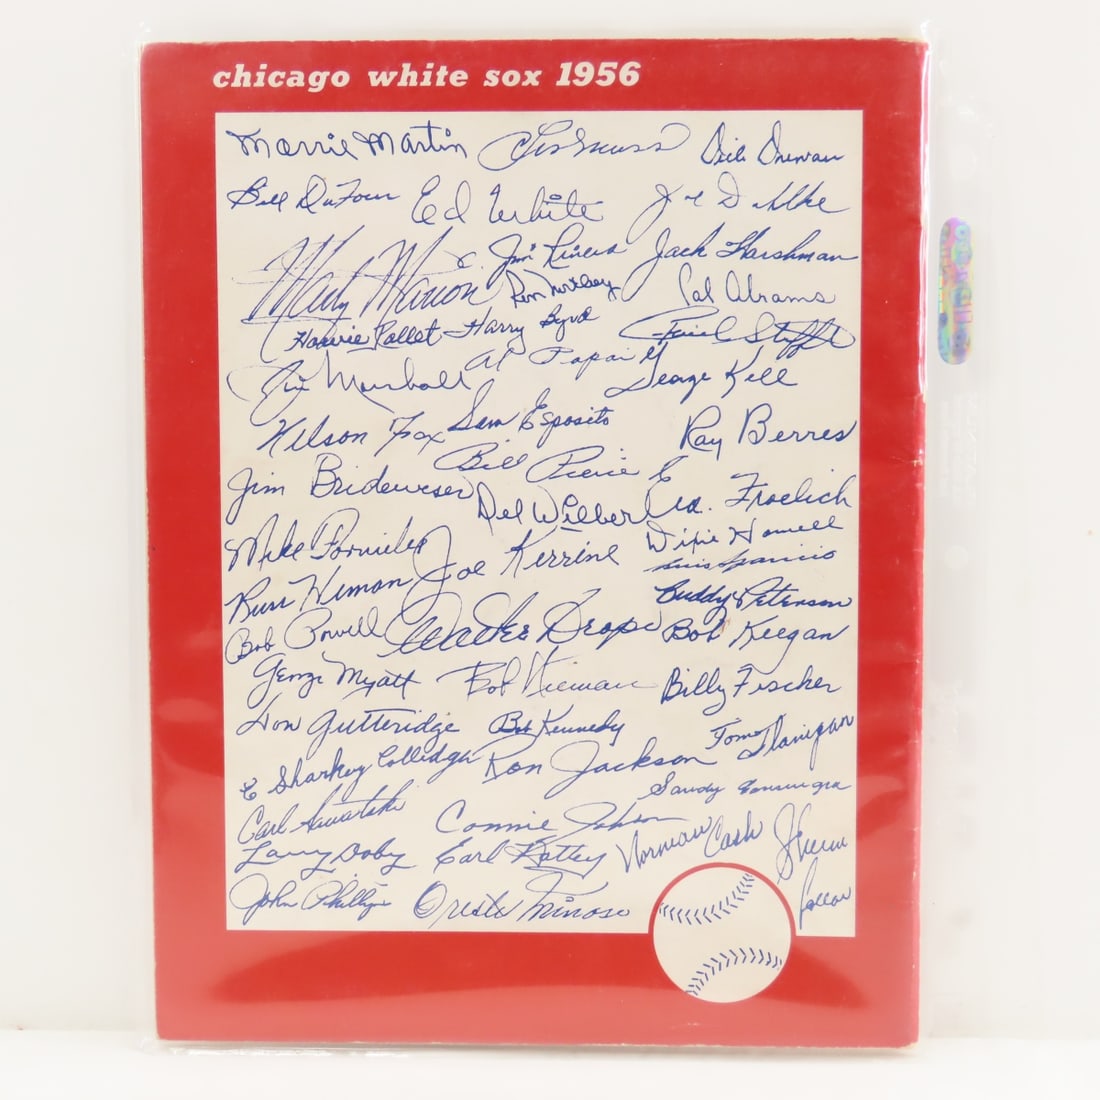 chicago white sox 1956
Morrie Martin Les Moss Dick Donovan
Bill DuFour Ed White Joe Dahlke
Marty Marion Jim Rivera Jack Harshman
Ron Northey Cal Abrams
Howie Pollet Harry Byrd Paul
Jim Marshall Al Papai George Kell
Nelson Fox Sam Esposito Ray Berres
Bill Pierce Ed. Froelich
Jim Brideweser Del Wilber Dixie Howell
Mike Fornieles Joe Kirrine Luis Aparicio
Russ Kemon Buddy Peterson
Bob Powell Walter Dropo Bob Keegan
George Myatt Bob Nieman Billy Fischer
Don Gutteridge Bob Kennedy Tom Flanigan
E Sharkey Colledge Ron Jackson
Sandy Consuegra
Carl Sawatski Connie Johnson
Larry Doby Earl Battey Norman Cash Sherm Lollar
John Phillips Oreste Minoso